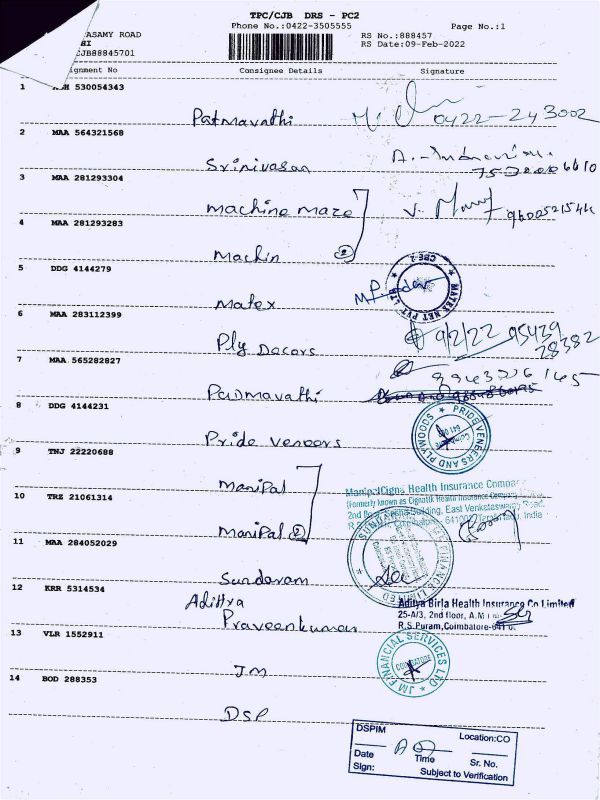 TPC/CJB DRS - PC2
Phone No.:0422-3505555 Page No.:1
ASAMY ROAD RS No.:888457
HI RS Date:09-Feb-2022
CJB88845701
ignment No Consignee Details Signature
1 530054343
Patmavathi 0422-243002
2 MAA 564321568
Srinivasan
3 MAA 281293304
machine maze V.
4 MAA 281293283
Machin 2
5 DDG 4144279
Matex MP
CBE-2 MATEX NET PVT LTD
6 MAA 283112399
Ply Decors 9/2/22 95439
28382
7 MAA 565282827
Padmavathi
8 DDG 4144231
Pride veneers
PRIDE VENEERS AND PLYWOODS Coimbatore 641
9 TNJ 22220688
Manipal
ManipalCigna Health Insurance Compa
(Formerly known as CignaTTK Health Insurance Company
10 TRZ 21061314
2nd floor, Building, East Venkataswamy Road,
R.S. Coimbatore 641002 Tamil Nadu, India
Manipal 2
11 MAA 284052029
Sundaram
SUNDARAM FINANCE LIMITED
12 KRR 5314534
Adittya
Praveenkumar
Aditya Birla Health Insurance Co Limited
25-A/3, 2nd floor, A.M
R.S.Puram,Coimbatore-641
13 VLR 1552911
JM
JM FINANCIAL SERVICES LTD COIMBATORE
14 BOD 288353
DSP
DSPIM Location:CO
Date Time Sr. No.
Sign: Subject to Verification